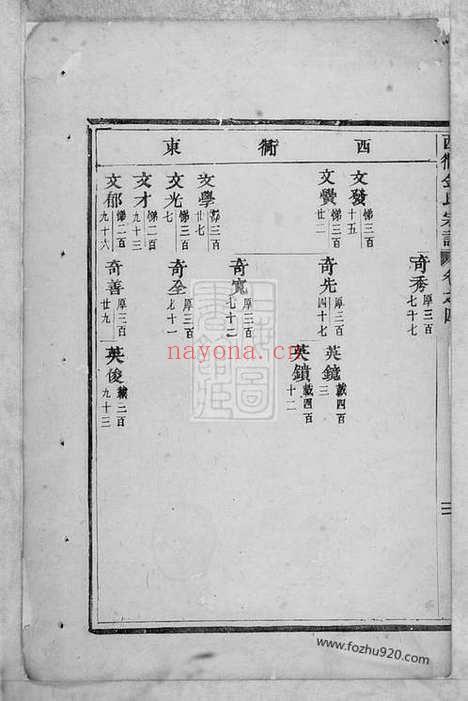 金氏宗譜 卷之四
三
西 衖 東
奇秀 厚三百七十七
文發 悌三百十五
英鏡 載四百三
文黌 悌三百廿二
奇先 厚三百四十七
英鎖 載四百十二
奇寬 厚三百七十二
文學 悌三百廿七
文光 悌三百七
奇全 厚三百七十一
文才 悌二百九十三
文郁 悌二百九十六
奇善 厚三百廿九
英俊 載二百九十三
nayona.cn
www.fozhu920.com